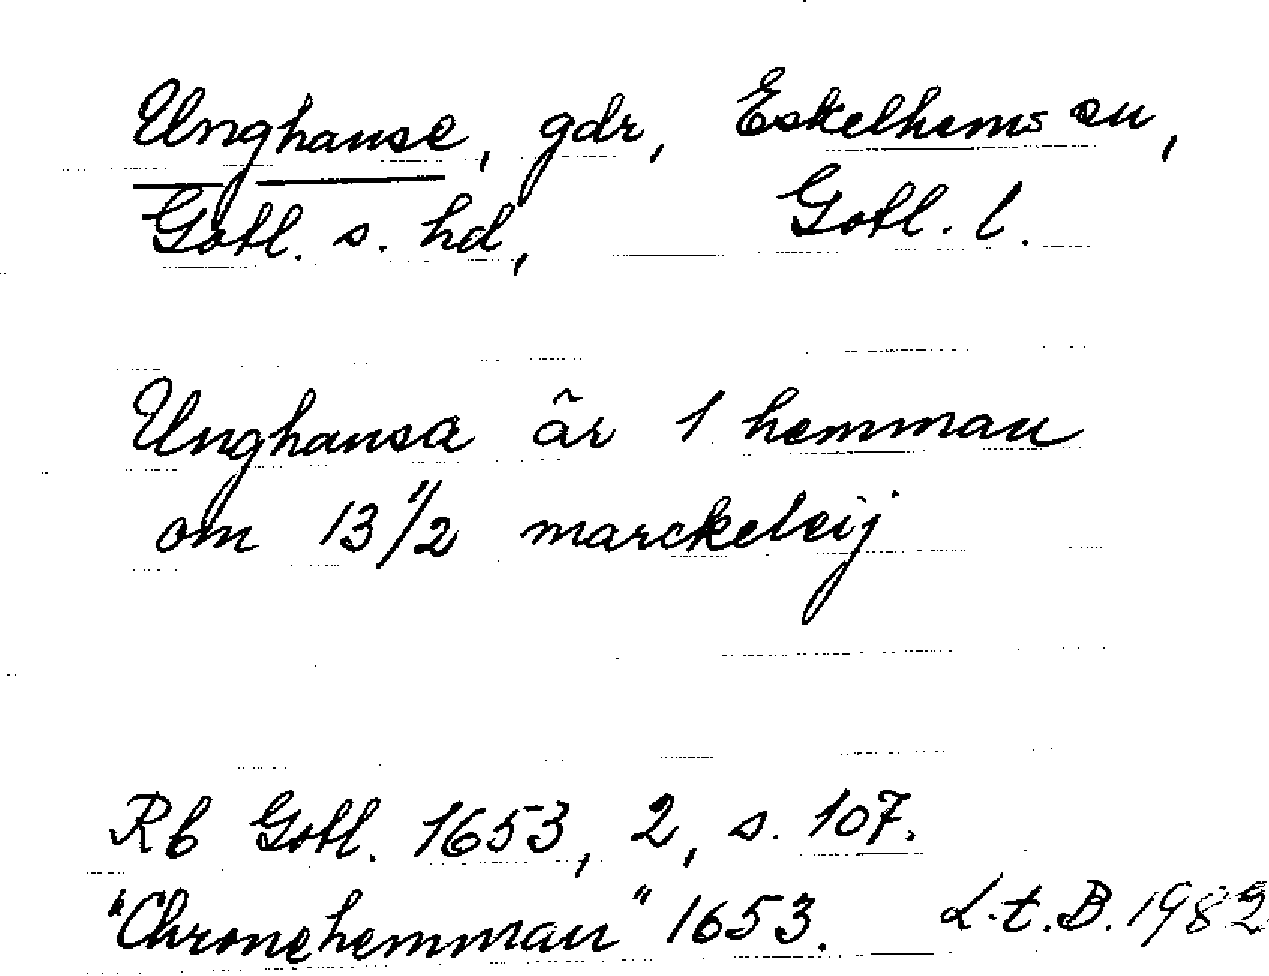 Unghanse, gdr, Eskelhems sn,
Gotl. s. hd, Gotl. l.
Unghansa är 1 hemman
om 13 1/2 marckeleij
Rb Gotl. 1653, 2, s. 107.
"Chronehemman" 1653. L.t.B. 1982